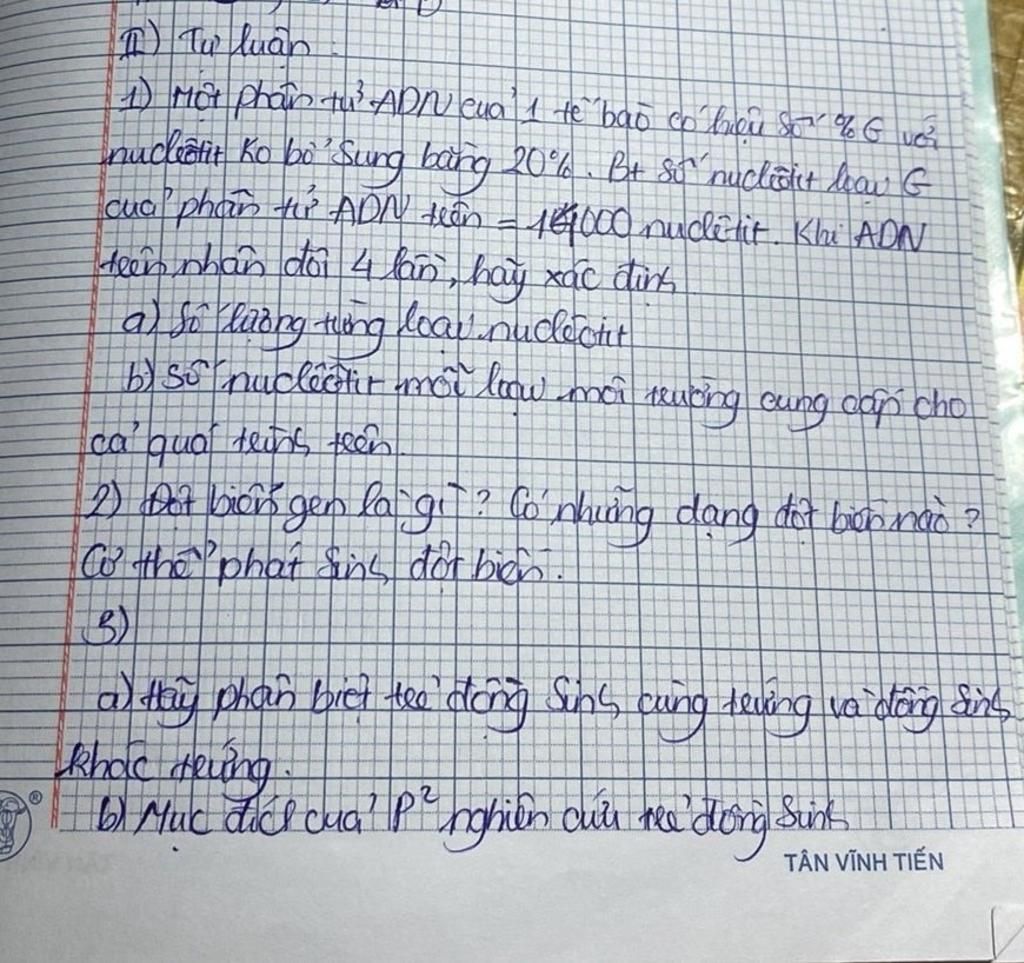 II) Tự luận
1) Một phân tử ADN của 1 tế bào có hiệu số % G với
nuclêôtit Ko bổ sung bằng 20%. Bt số nuclêôtit loại G
của phân tử ADN trên = 14000 nuclêtit. Khi ADN
trên nhân đôi 4 lần, hãy xác định
a) Số lượng từng loại nuclêôtit
b) Số nuclêôtit mỗi loại môi trường cung cấp cho
cả quá trình trên.
2) Đột biến gen là gì? Có những dạng đột biến nào?
Cơ thể phát sinh đột biến.
3)
a) Hãy phân biệt trẻ đồng sinh cùng trứng và đồng sinh
khác trứng.
b) Mục đích của P² nghiên cứu trẻ đồng sinh
®
TÂN VĨNH TIẾN